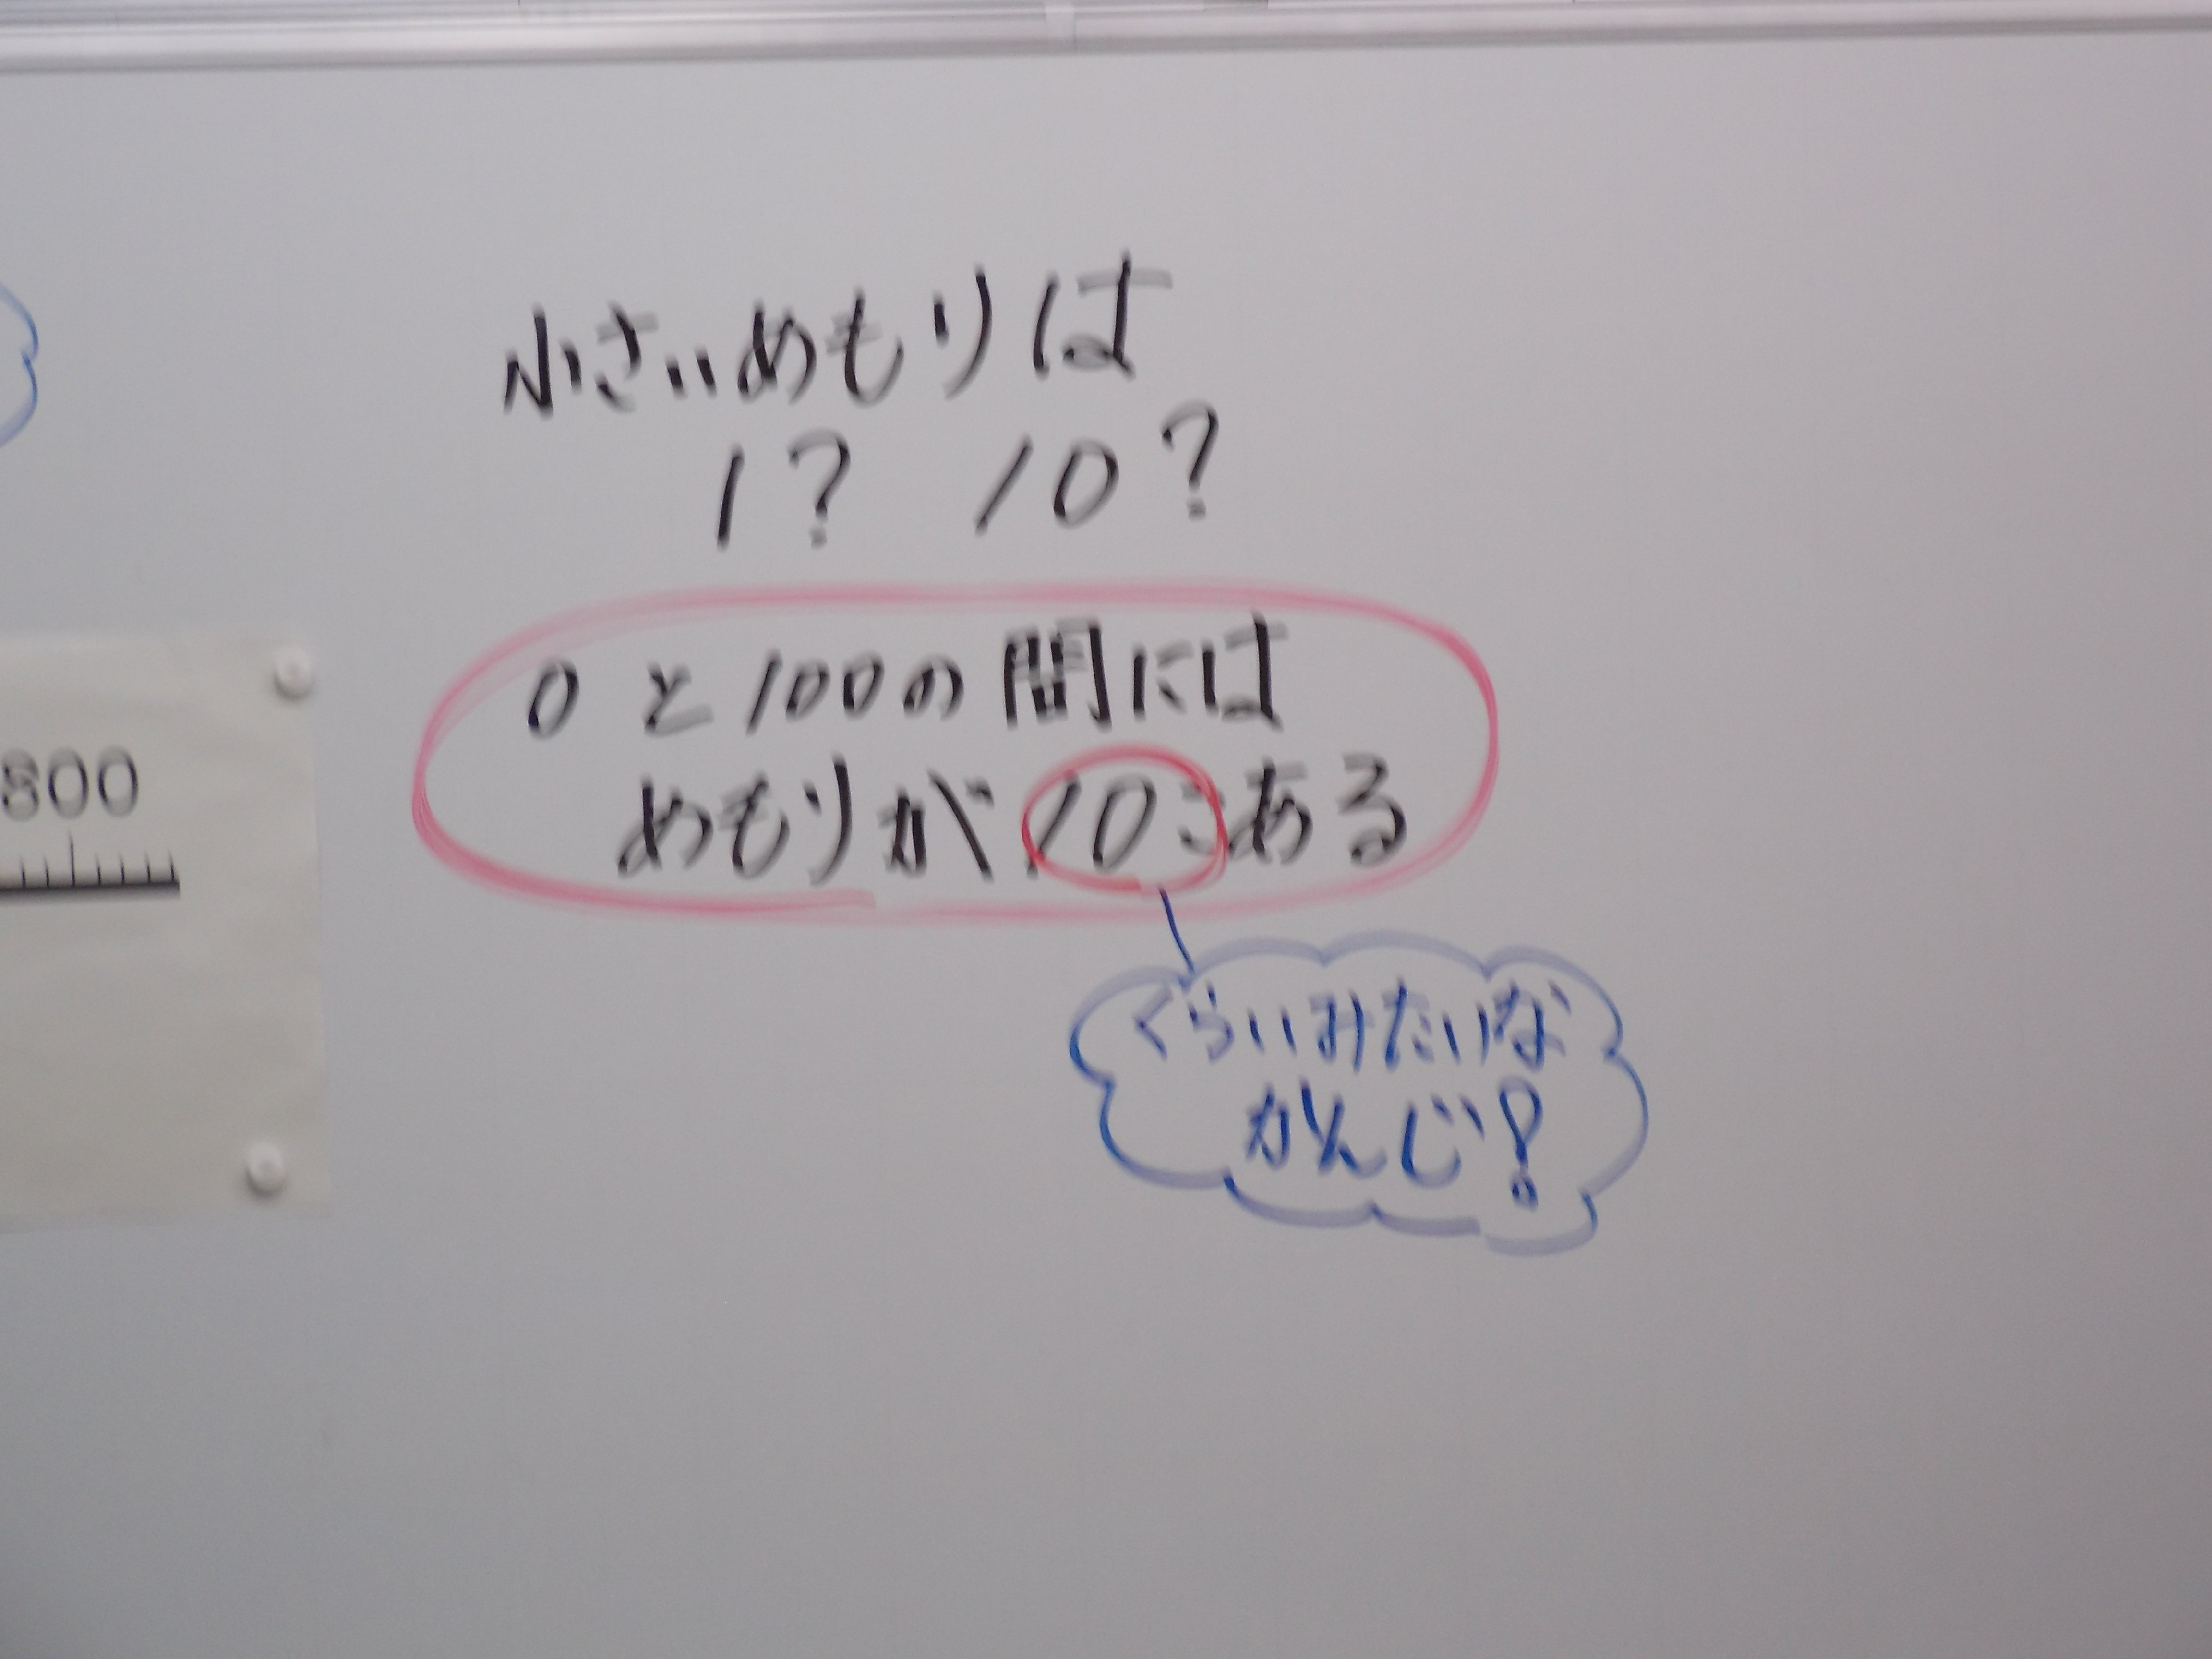 小さいめもりは
1? 10?
0と100の間には
めもりが10こある
800
くらいみたいな
かんじ!